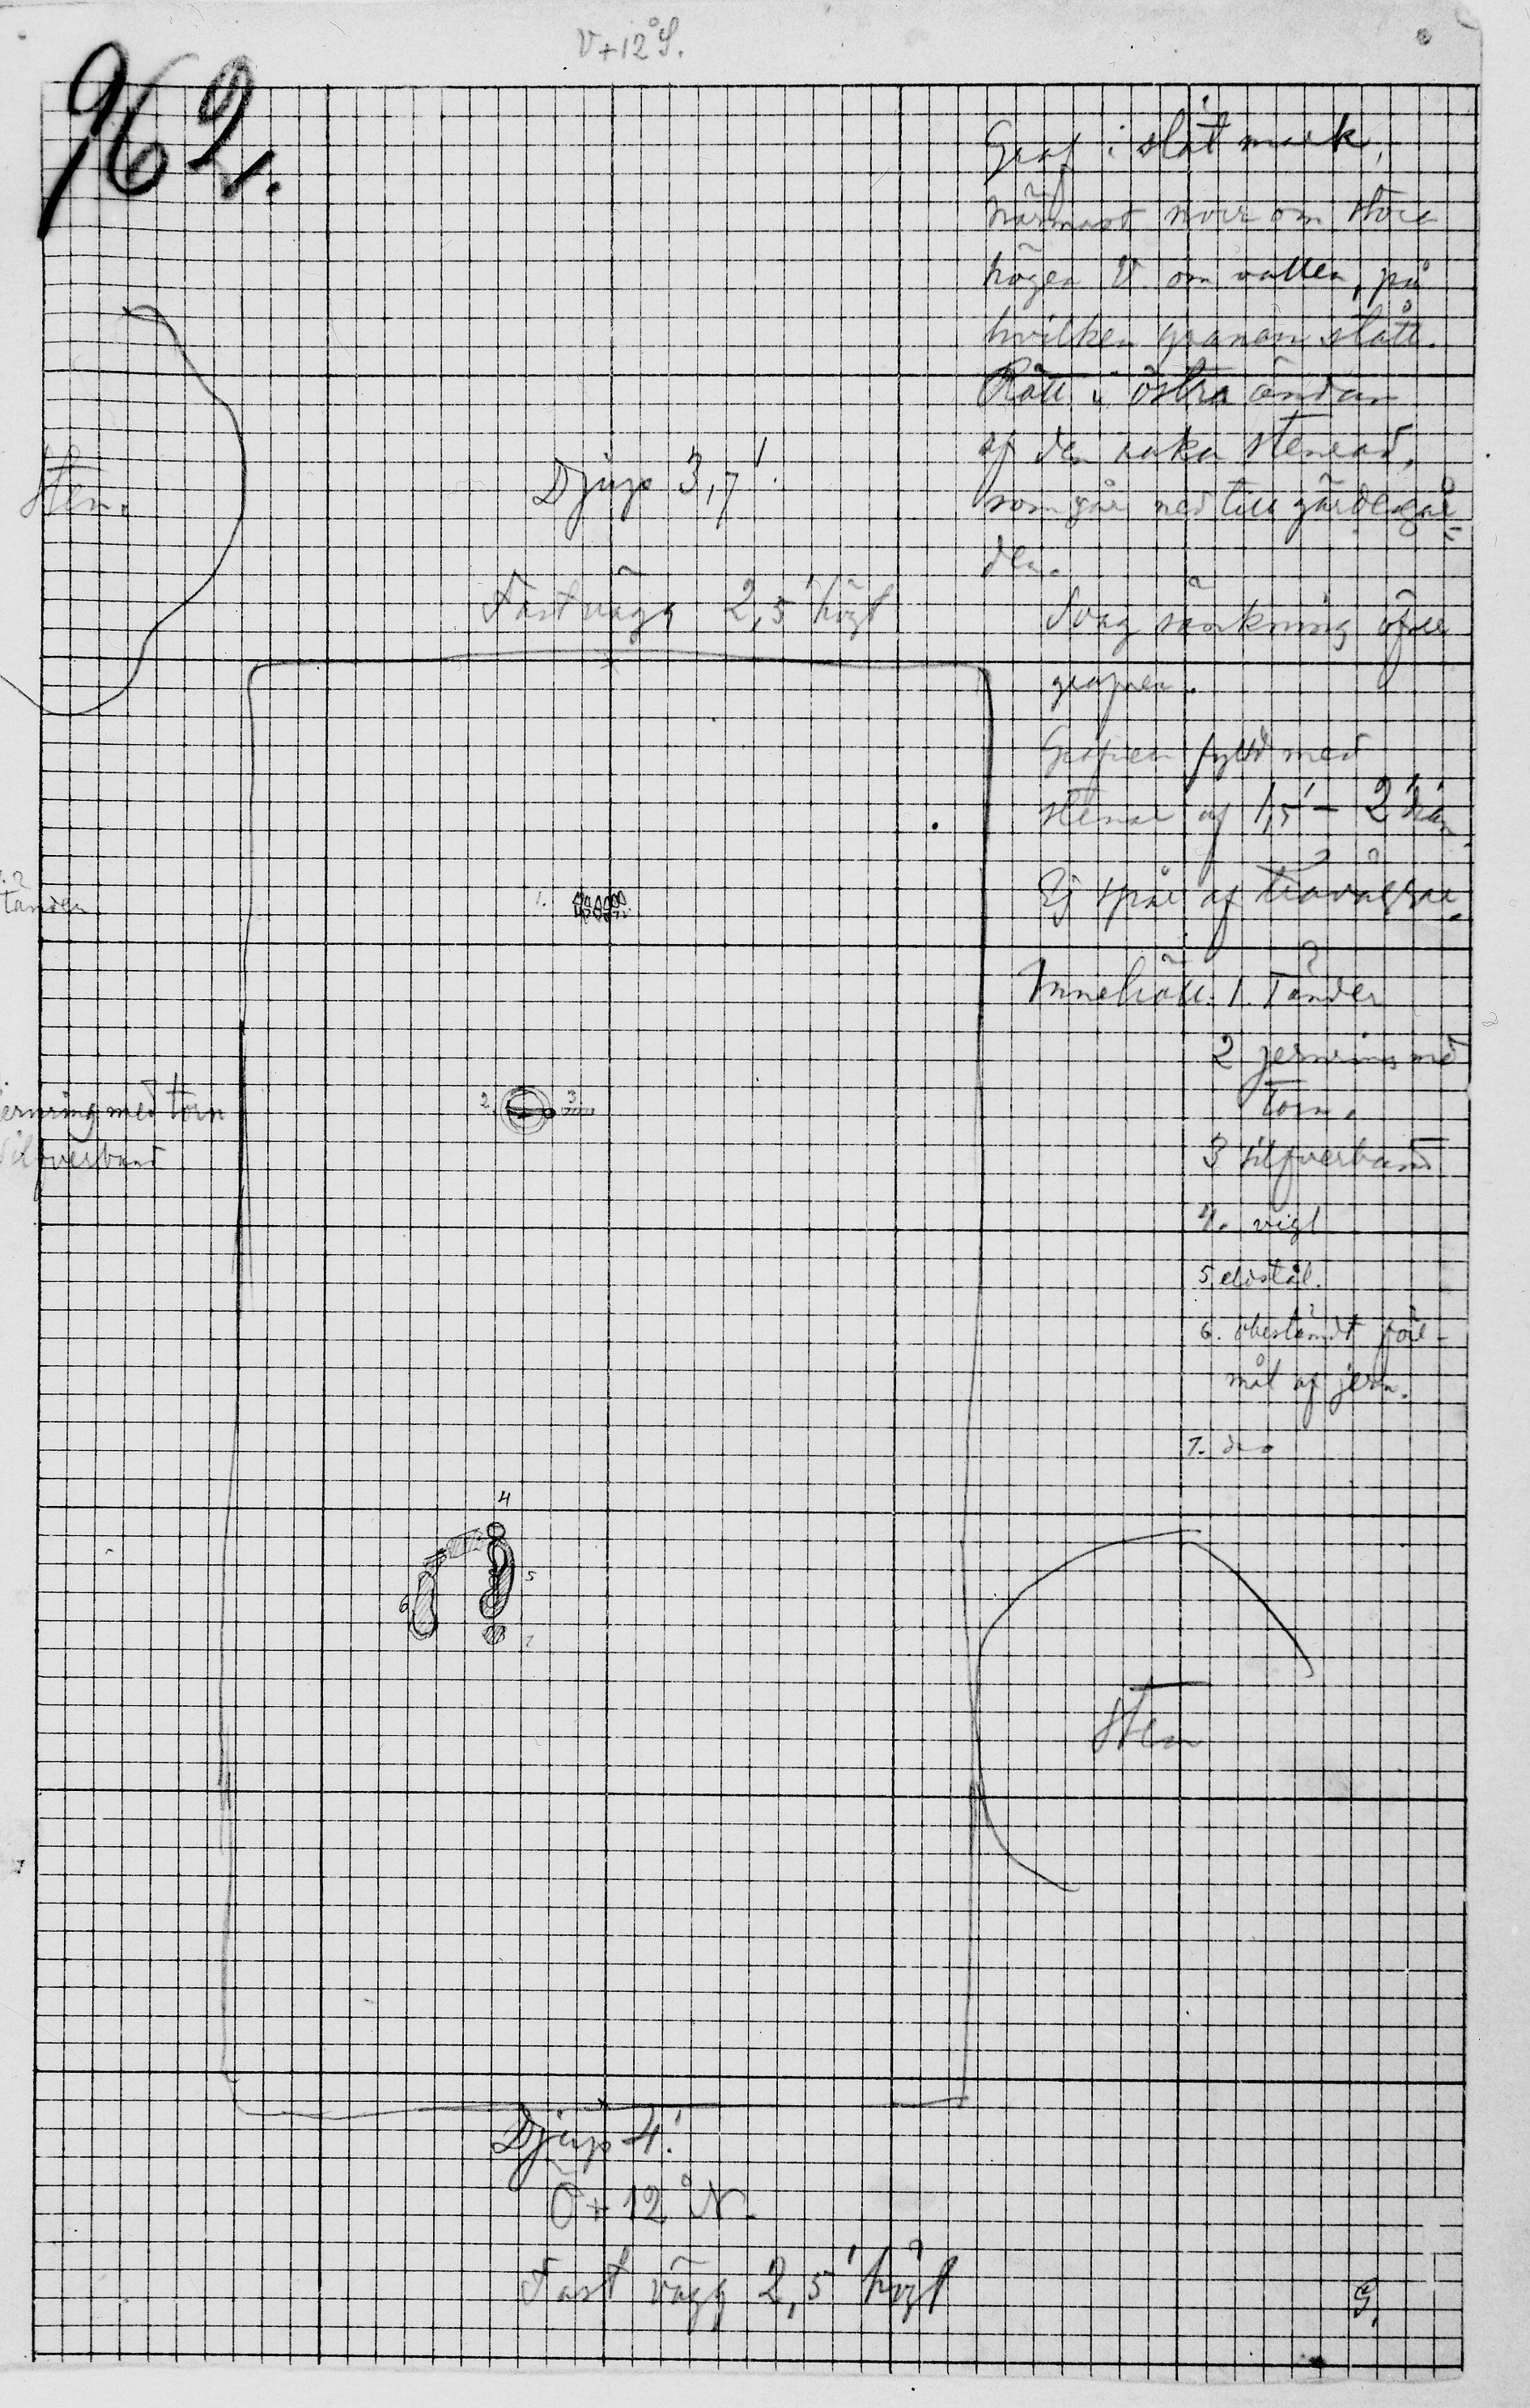 V+12°S.
962.
Graf i slät mark,
närmast norr om stora
högen V. om vallen, på
hvilken granen stått.
Rätt i östra ändan
af den raka stenrad,
som går ned till gärdesgår=
den.
Svag sänkning öfver
grafven.
Grafven fylld med
stenar af 1,5'- 2' diam.
Ej spår af
Innehåll: 1. Tänder
2 jernring med
torn.
3 silfverband
4. vigt
5. eldstål.
6. obestämdt före-
mål af jern.
7. do
Sten.
Djup 3,7'.
Fast vägg 2,5' högt
tänder
1.
2. 3
jernring med torn
Silfverband
4
5
6
7
Sten
Djup 4'.
Ö+12°N.
Fast vägg 2,5' högt
G.